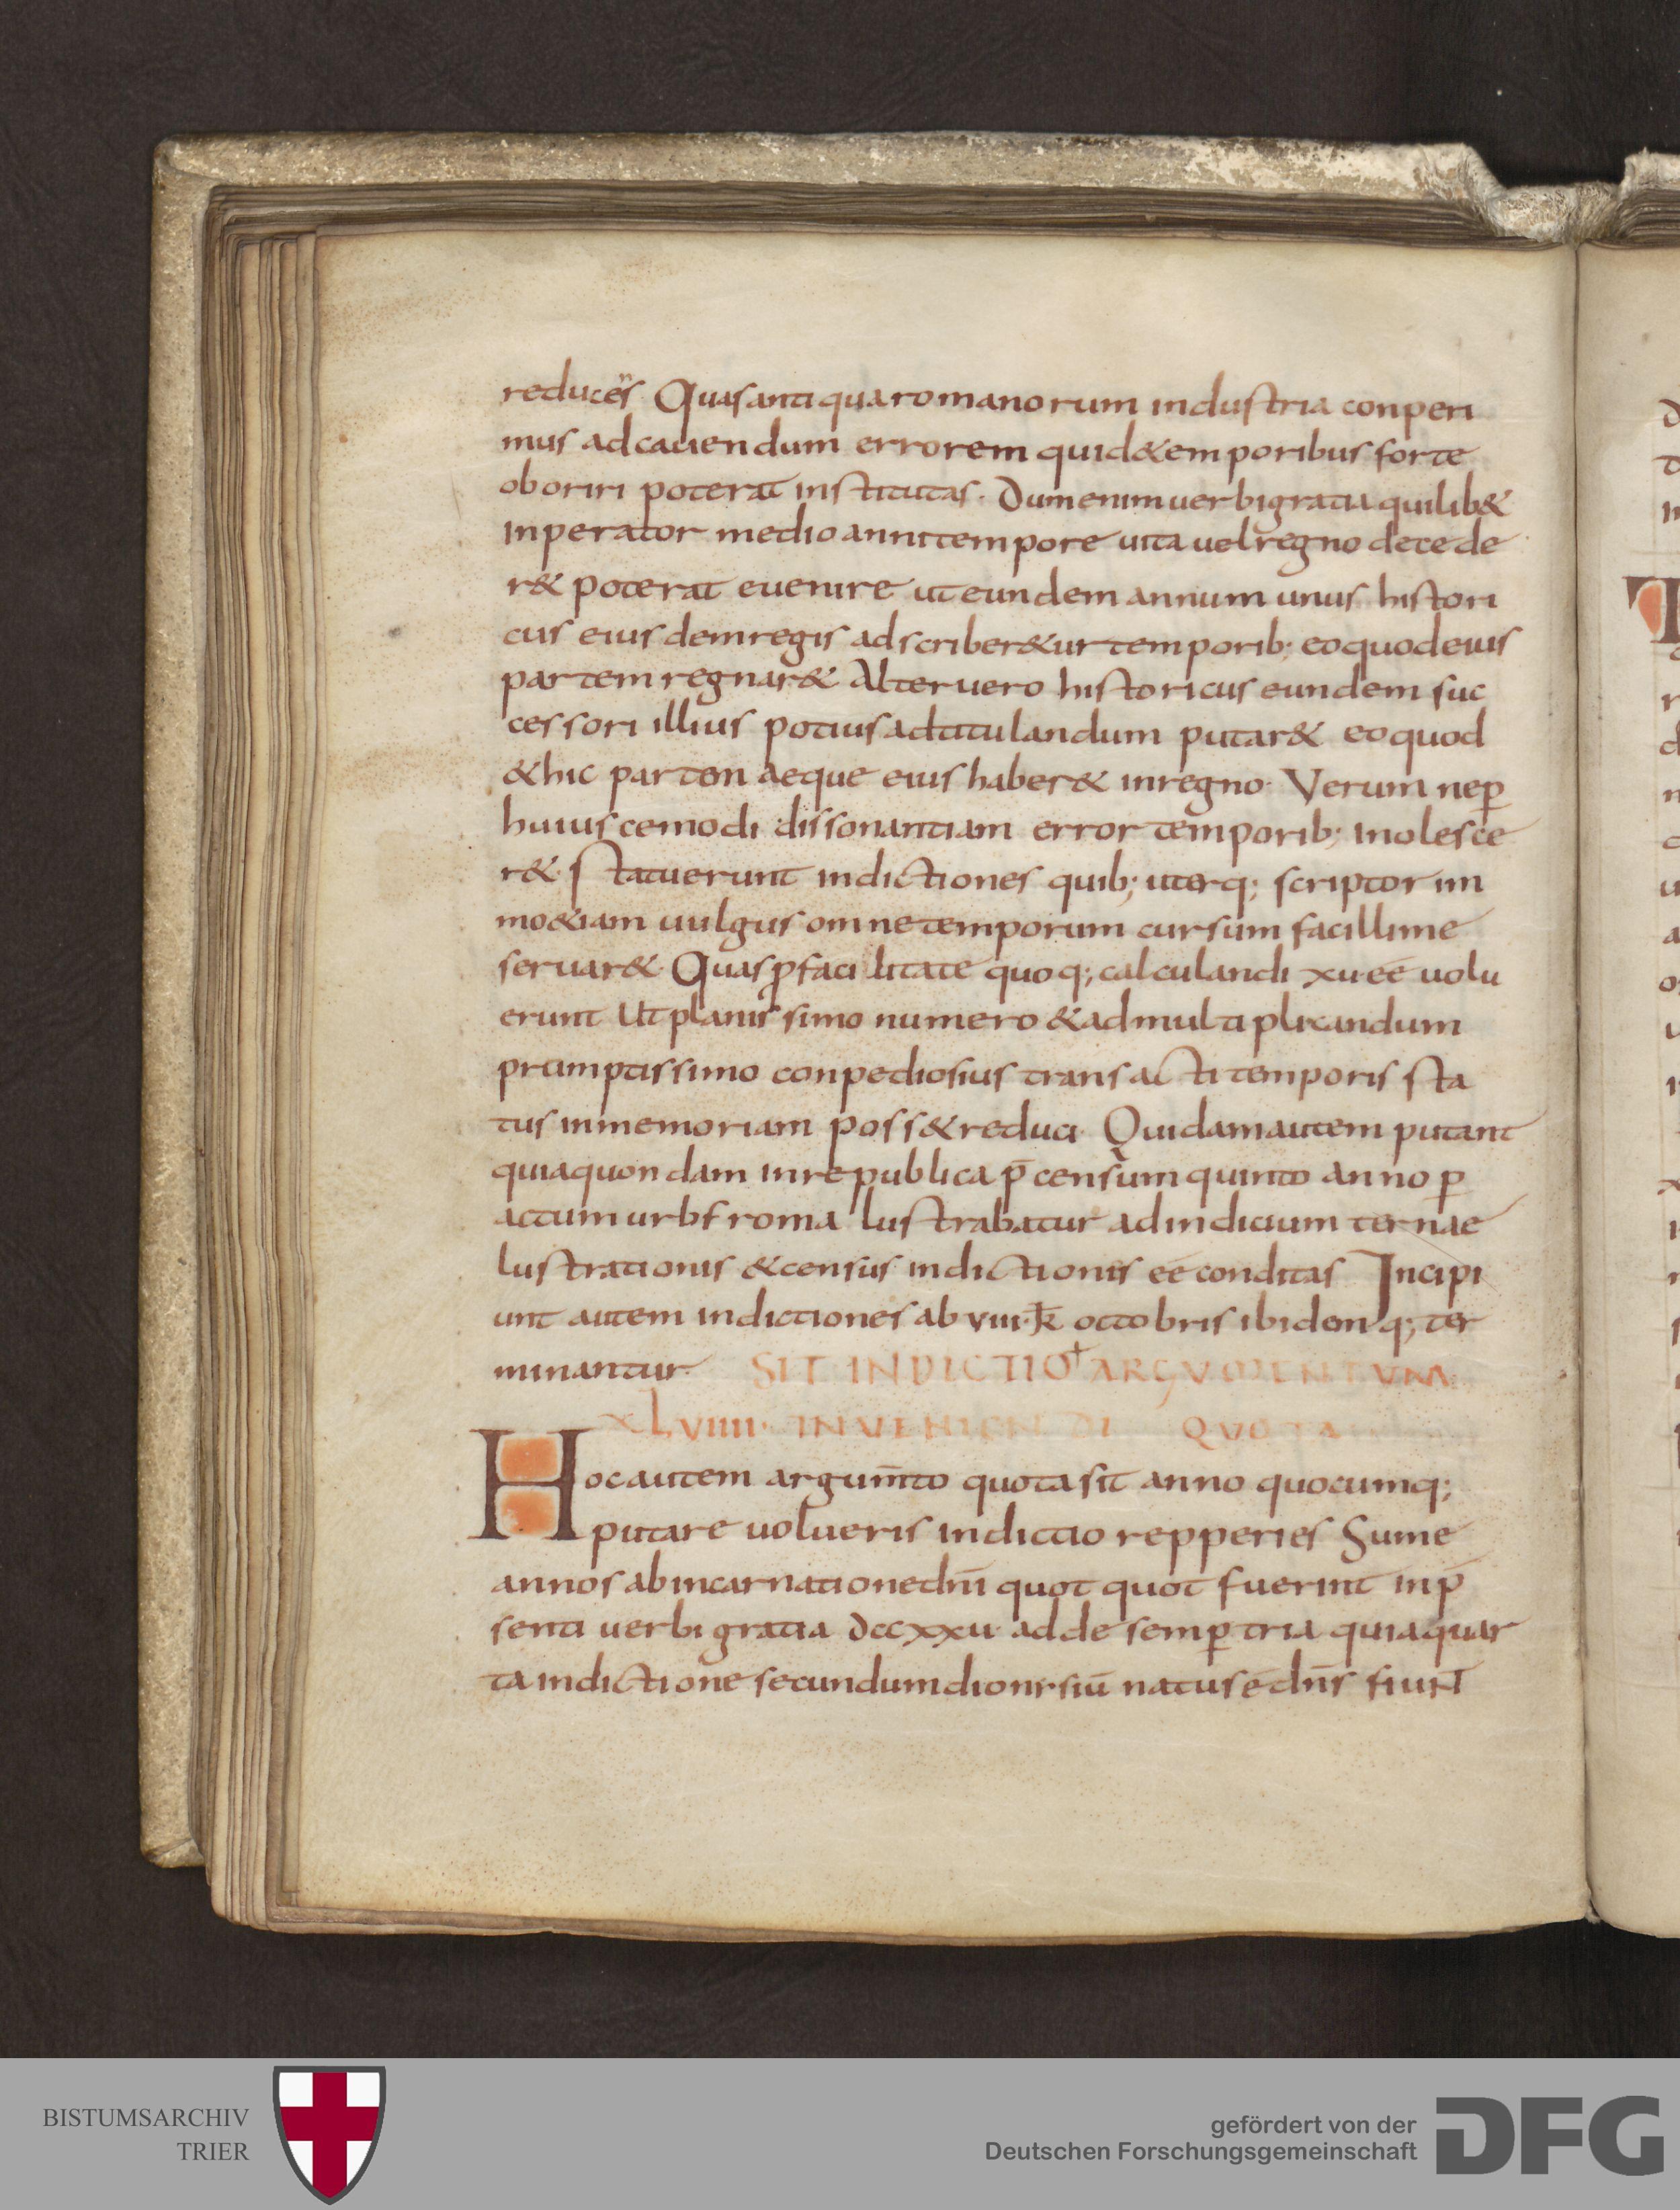 reducen̈s Quas antiqua romanorum industria conperi
mus ad cauendum errorem qui d&emporibus forte
oboriri poterat institutas. Dum enim uerbi gratia quilib&
inperator medio anni tempore uita uel regno decede
r& poterat euenire ut eundem annum unus histori
cus eiusdem regis adscriber&ur temporib; eo quod eius
partem regnar& Alter uero historicus eundem suc
cessori illius potius adtitulandum putar& eo quod
& hic partem aeque eius haber& in regno. Verum ne ꝑ
huiuscemodi dissonantiam error temporib; inolesce
r& statuerunt indictiones quib; uterq; scriptor im
mo &iam uulgus omne temporum cursum facillime
seruar&. Quas ꝓ facilitate quoq; calculandi xu ee uolu
erunt Ut planissimo numero & ad multiplicandum
prumptissimo conpediosius transacti temporis sta
tus in memoriam poss& reduci. Quidam autem putant
quia quondam in re publica p̄ censum quinto anno ꝑ
actum urbs roma lustrabatur ad indicium ternae
lustrationis & census indictionis ee conditas Incipi
unt autem indictiones ab viii. k̄ octobris ibidemq; ter
minantur. SIT INDICTIO† ARGUMENTUM
XLVIIII. INUENIENDI QUOTA
Hoc autem argum̄to quota sit anno quocumq;
putare uolueris indictio repperies Sume
annos ab incarnatione dn̄i quot quot fuerint in p̄
senti uerbi gratia dccxxu adde semꝑ tria quia quar
ta indictione secundum dionisiū natus ē dn̄s fiunt
BISTUMSARCHIV
TRIER
gefördert von der
Deutschen Forschungsgemeinschaft
DFG